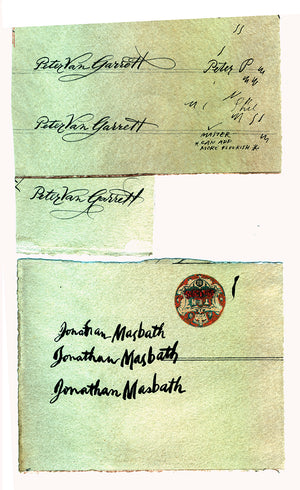 Peter Van Garrett
Peter P
Peter Van Garrett
MASTER
CAN ADD
MORE FLOURISH
Peter Van Garrett
Jonathan Masbath
Jonathan Masbath
Jonathan Masbath